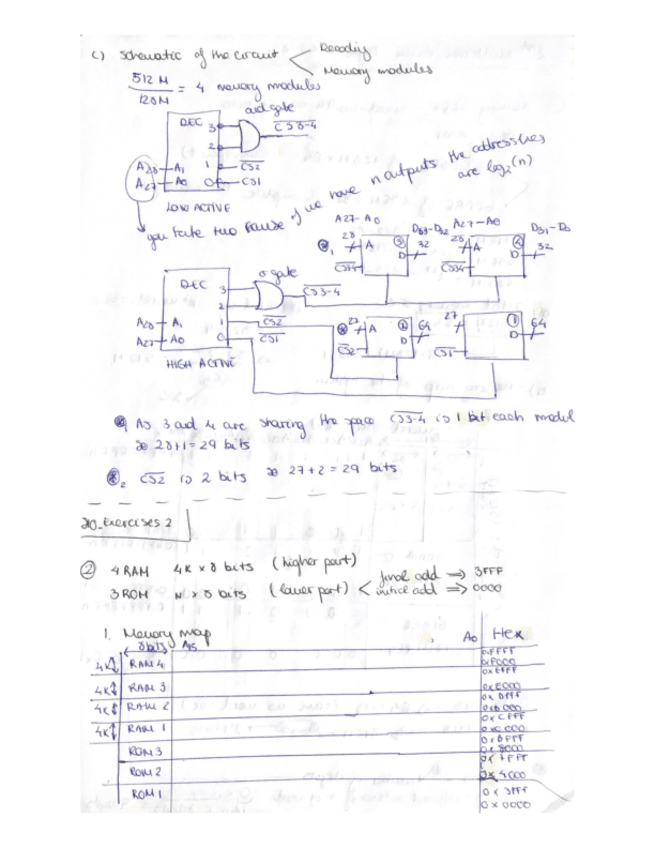 c) Schematic of the circuit < Decoding
Memory modules
512 M / 128M = 4 memory modules
and gate
DEC 3 CS3-4
2
A28 A1 1 CS2
A27 A0 0 CS1
LOW ACTIVE
you take two cause if we have n outputs the addresses are log2(n)
A27-A0 D63-D32 A27-A0 D31-D0
*1 28 A 3 32 28 A 4 32
CS3-4 D CS3-4 D
o gate
DEC 3 CS3-4
2
A28 A1 1 CS2
A27 A0 0 CS1
HIGH ACTIVE
*2 27 A 2 64 27 1 64
CS2 D CS1 D
* As 3 and 4 are sharing the space CS3-4 is 1 bit each modul
so 28+1 = 29 bits
*2 CS2 is 2 bits so 27+2 = 29 bits
IO_Exercises 2
2 4 RAM 4K x 8 bits (higher part)
3 ROM N x 8 bits (lower part) < final add => 3FFF
initial add => 0000
1. Memory map
8 bits A15 A0 Hex
0xFFFF
4K RAM 4 0xF000
0xEFFF
4K RAM 3 0xE000
0xDFFF
4K RAM 2 0xD000
0xCFFF
4K RAM 1 0xC000
0xBFFF
ROM 3 0x8000
0x7FFF
ROM 2 0x4000
0x3FFF
ROM 1 0x0000